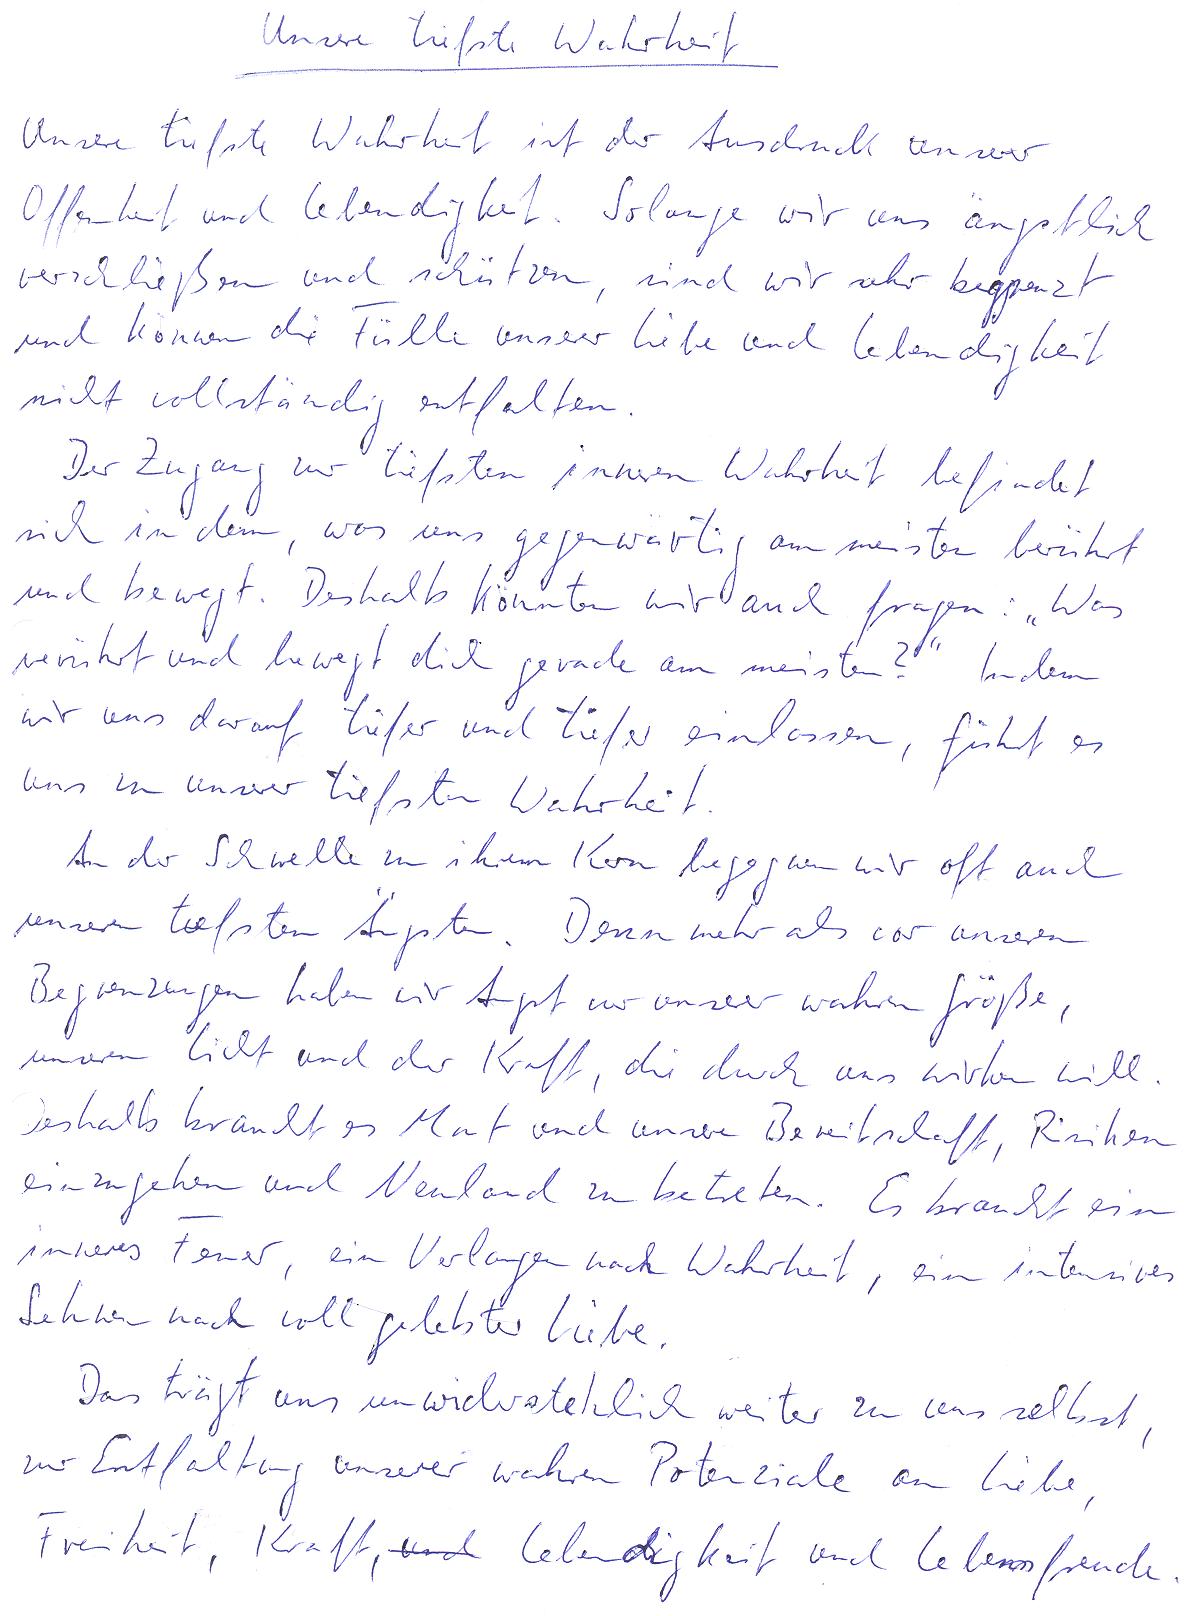 Unsere tiefste Wahrheit
Unsere tiefste Wahrheit ist der Ausdruck unserer
Offenheit und Lebendigkeit. Solange wir uns ängstlich
verschließen und schützen, sind wir sehr begrenzt
und können die Fülle unserer Liebe und Lebendigkeit
nicht vollständig entfalten.
Der Zugang zur tiefsten inneren Wahrheit befindet
sich in dem, was uns gegenwärtig am meisten berührt
und bewegt. Deshalb könnten wir auch fragen: „Was
berührt und bewegt dich gerade am meisten?“ Indem
wir uns darauf tiefer und tiefer einlassen, führt es
uns zu unserer tiefsten Wahrheit.
An der Schwelle zu ihrem Kern begegnen wir oft auch
unseren tiefsten Ängsten. Denn mehr als vor unseren
Begrenzungen haben wir Angst vor unserer wahren Größe,
unserem Licht und der Kraft, die durch uns wirken will.
Deshalb braucht es Mut und unsere Bereitschaft, Risiken
einzugehen und Neuland zu betreten. Es braucht ein
inneres Feuer, ein Verlangen nach Wahrheit, ein intensives
Sehnen nach voll gelebter Liebe.
Das trägt uns unwiderstehlich weiter zu uns selbst,
zur Entfaltung unserer wahren Potenziale an Liebe,
Freiheit, Kraft, und Lebendigkeit und Lebensfreude.